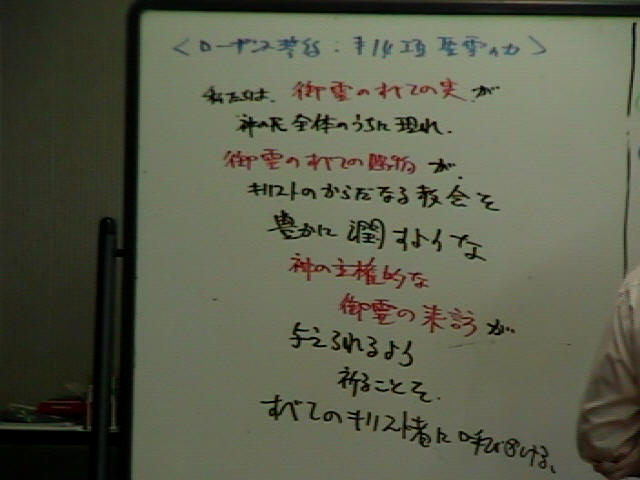 <ローザンヌ誓約:第14項 聖霊の力>
私たちは、御霊のすべての実が
神の民全体のうちに現れ、
御霊のすべての賜物が、
キリストのからだなる教会を
豊かに潤すような
神の主権的な
御霊の来訪が
与えられるよう
祈ることを、
すべてのキリスト者に呼びかける。